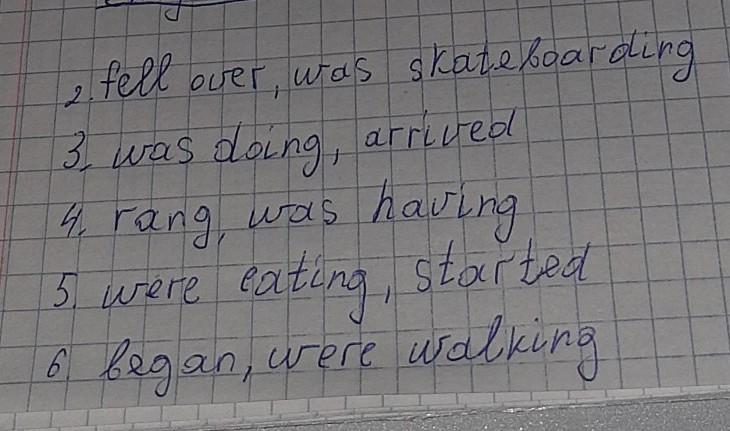 2. fell over, was skateboarding
3. was doing, arrived
4. rang, was having
5. were eating, started
6. began, were walking